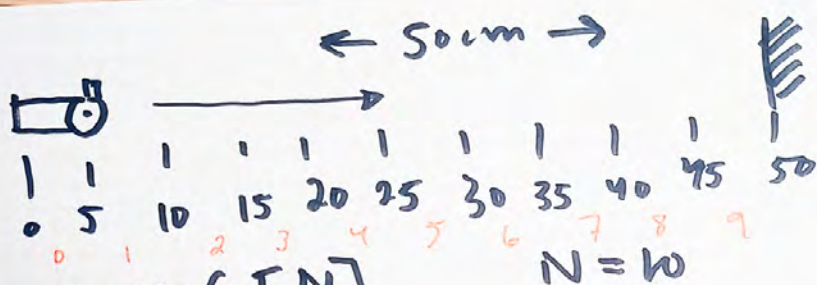 ← 50cm →
0 5 10 15 20 25 30 35 40 45 50
0 1 2 3 4 5 6 7 8 9
N = 10